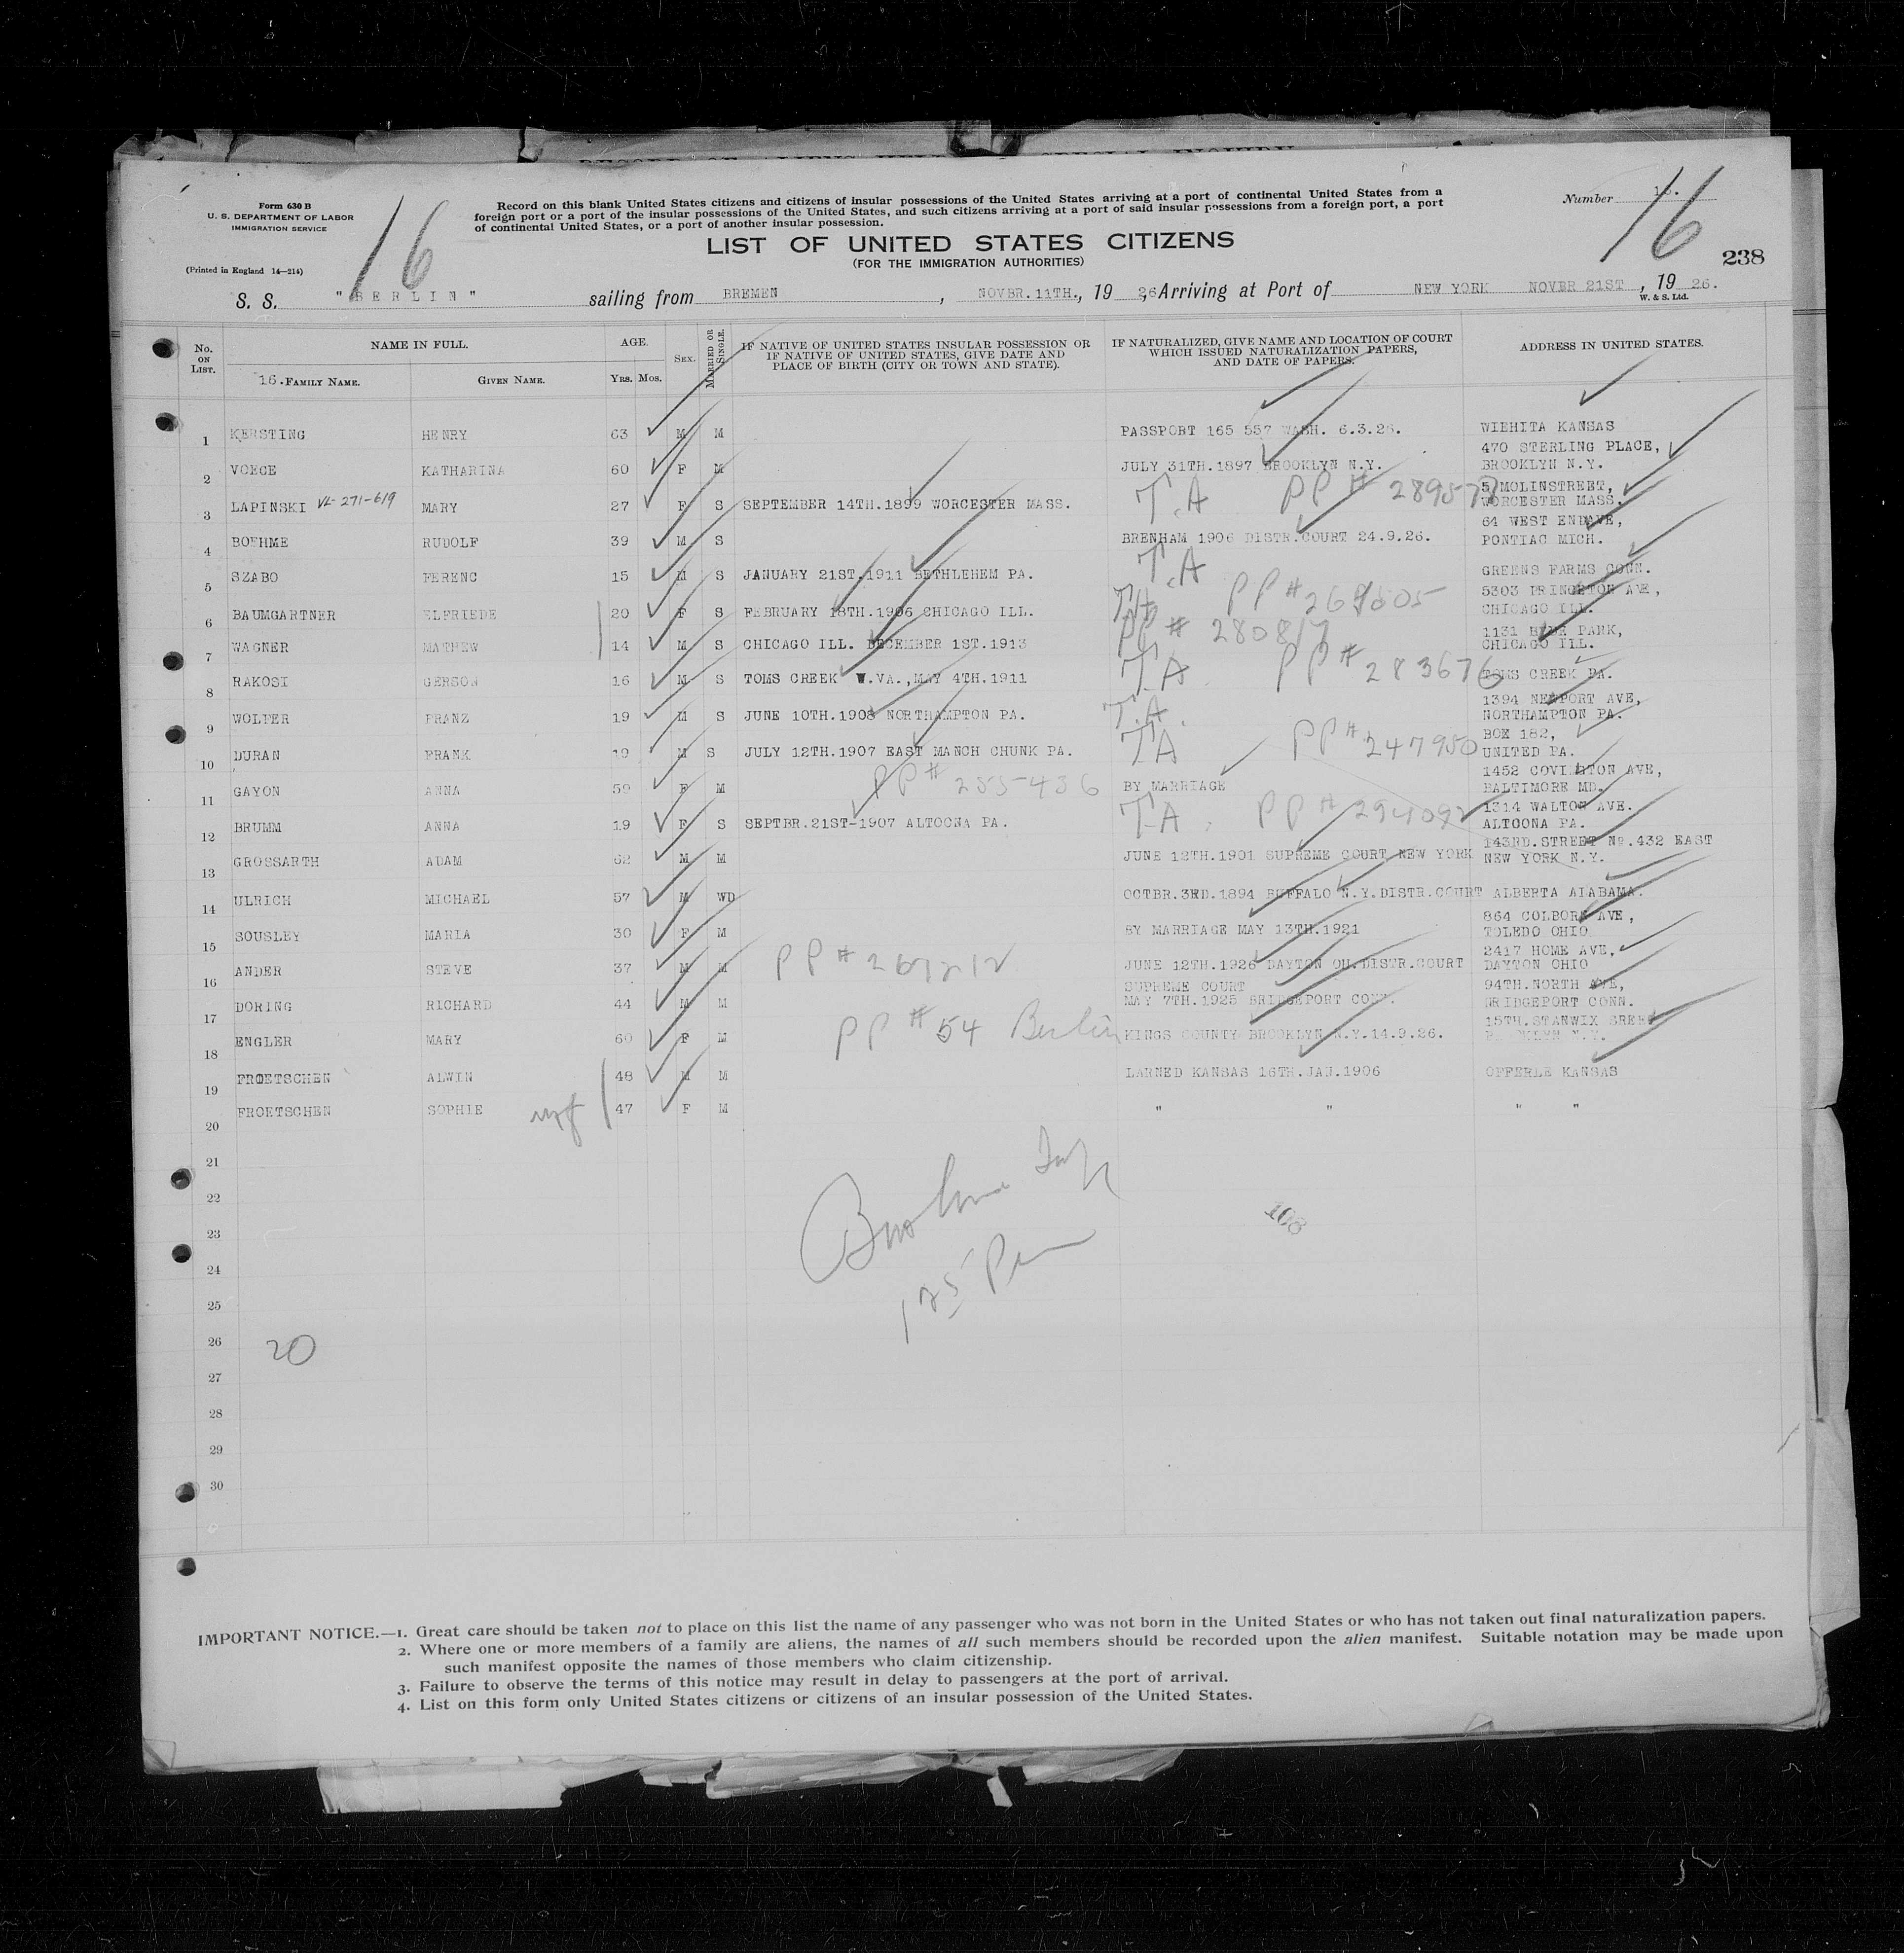 Form 630 B
U. S. DEPARTMENT OF LABOR
IMMIGRATION SERVICE
(Printed in England 14—214)
16
Record on this blank United States citizens and citizens of insular possessions of the United States arriving at a port of continental United States from a
foreign port or a port of the insular possessions of the United States, and such citizens arriving at a port of said insular possessions from a foreign port, a port
of continental United States, or a port of another insular possession.
Number 16.
16
238
LIST OF UNITED STATES CITIZENS
(FOR THE IMMIGRATION AUTHORITIES)
S. S. "BERLIN" sailing from BREMEN, NOVBR.11TH., 19 26, Arriving at Port of NEW YORK NOVBR 21ST, 19 26.
W. & S. Ltd.
No. ON LIST. NAME IN FULL. AGE. SEX. MARRIED OR SINGLE. IF NATIVE OF UNITED STATES INSULAR POSSESSION OR IF NATIVE OF UNITED STATES, GIVE DATE AND PLACE OF BIRTH (CITY OR TOWN AND STATE). IF NATURALIZED, GIVE NAME AND LOCATION OF COURT WHICH ISSUED NATURALIZATION PAPERS, AND DATE OF PAPERS. ADDRESS IN UNITED STATES.
16. FAMILY NAME. GIVEN NAME. Yrs. Mos.
1 KERSTING HENRY 63 M M PASSPORT 165 557 WASH. 6.3.26. WIEHITA KANSAS
2 VOEGE KATHARINA 60 F M JULY 31TH.1897 BROOKLYN N.Y. 470 STERLING PLACE, BROOKLYN N.Y.
3 LAPINSKI VL-271-619 MARY 27 F S SEPTEMBER 14TH.1899 WORCESTER MASS. T.A PP# 289578 5 MOLINSTREET, WORCESTER MASS.
4 BOEHME RUDOLF 39 M S BRENHAM 1906 DISTR.COURT 24.9.26. 64 WEST ENDAVE, PONTIAC MICH.
5 SZABO FERENC 15 M S JANUARY 21ST.1911 BETHLEHEM PA. T.A GREENS FARMS CONN.
6 BAUMGARTNER ELFRIEDE 20 F S FEBRUARY 18TH.1906 CHICAGO ILL. PP# 5303 PRINCETON AVE, CHICAGO ILL.
7 WAGNER MATHEW 14 M S CHICAGO ILL. DECEMBER 1ST.1913 PP# 280817 1131 HYDE PARK, CHICAGO ILL.
8 RAKOSI GERSON 16 M S TOMS CREEK W.VA.,MAY 4TH.1911 T.A PP# 283676 TOMS CREEK PA.
9 WOLFER FRANZ 19 M S JUNE 10TH.1908 NORTHAMPTON PA. T.A. 1394 NEWPORT AVE, NORTHAMPTON PA.
10 DURAN FRANK 19 M S JULY 12TH.1907 EAST MANCH CHUNK PA. TA PP# 247950 BOX 182, UNITED PA.
11 GAYON ANNA 59 F M PP# 255436 BY MARRIAGE 1452 COVINGTON AVE, BALTIMORE MD.
12 BRUMM ANNA 19 F S SEPTBR.21ST-1907 ALTOONA PA. TA. PP# 294092 1314 WALTON AVE. ALTOONA PA.
13 GROSSARTH ADAM 62 M M JUNE 12TH.1901 SUPREME COURT NEW YORK 143RD.STREET No.432 EAST NEW YORK N.Y.
14 ULRICH MICHAEL 57 M WD OCTBR.3RD.1894 BUFFALO N.Y.DISTR.COURT ALBERTA ALABAMA.
15 SOUSLEY MARIA 30 F M BY MARRIAGE MAY 13TH.1921 864 COLBORN AVE, TOLEDO OHIO
16 ANDER STEVE 37 M M PP# 267212 JUNE 12TH.1926 DAYTON OH.DISTR.COURT 2417 HOME AVE, DAYTON OHIO
17 DORING RICHARD 44 M M SUPREME COURT MAY 7TH.1925 BRIDGEPORT CONN. 94TH.NORTH AVE, BRIDGEPORT CONN.
18 ENGLER MARY 60 F M PP# 54 Berlin KINGS COUNTY BROOKLYN N.Y.14.9.26. 15TH.STANWIX SREET BROOKLYN N.Y.
19 FROETSCHEN ALWIN 48 M M LARNED KANSAS 16TH.JAN.1906 OFFERLE KANSAS
20 FROETSCHEN SOPHIE 47 F M " " " "
21
22
23
24
25
26
27
28
29
30
108
125
20
IMPORTANT NOTICE.—1. Great care should be taken not to place on this list the name of any passenger who was not born in the United States or who has not taken out final naturalization papers.
2. Where one or more members of a family are aliens, the names of all such members should be recorded upon the alien manifest. Suitable notation may be made upon
such manifest opposite the names of those members who claim citizenship.
3. Failure to observe the terms of this notice may result in delay to passengers at the port of arrival.
4. List on this form only United States citizens or citizens of an insular possession of the United States.